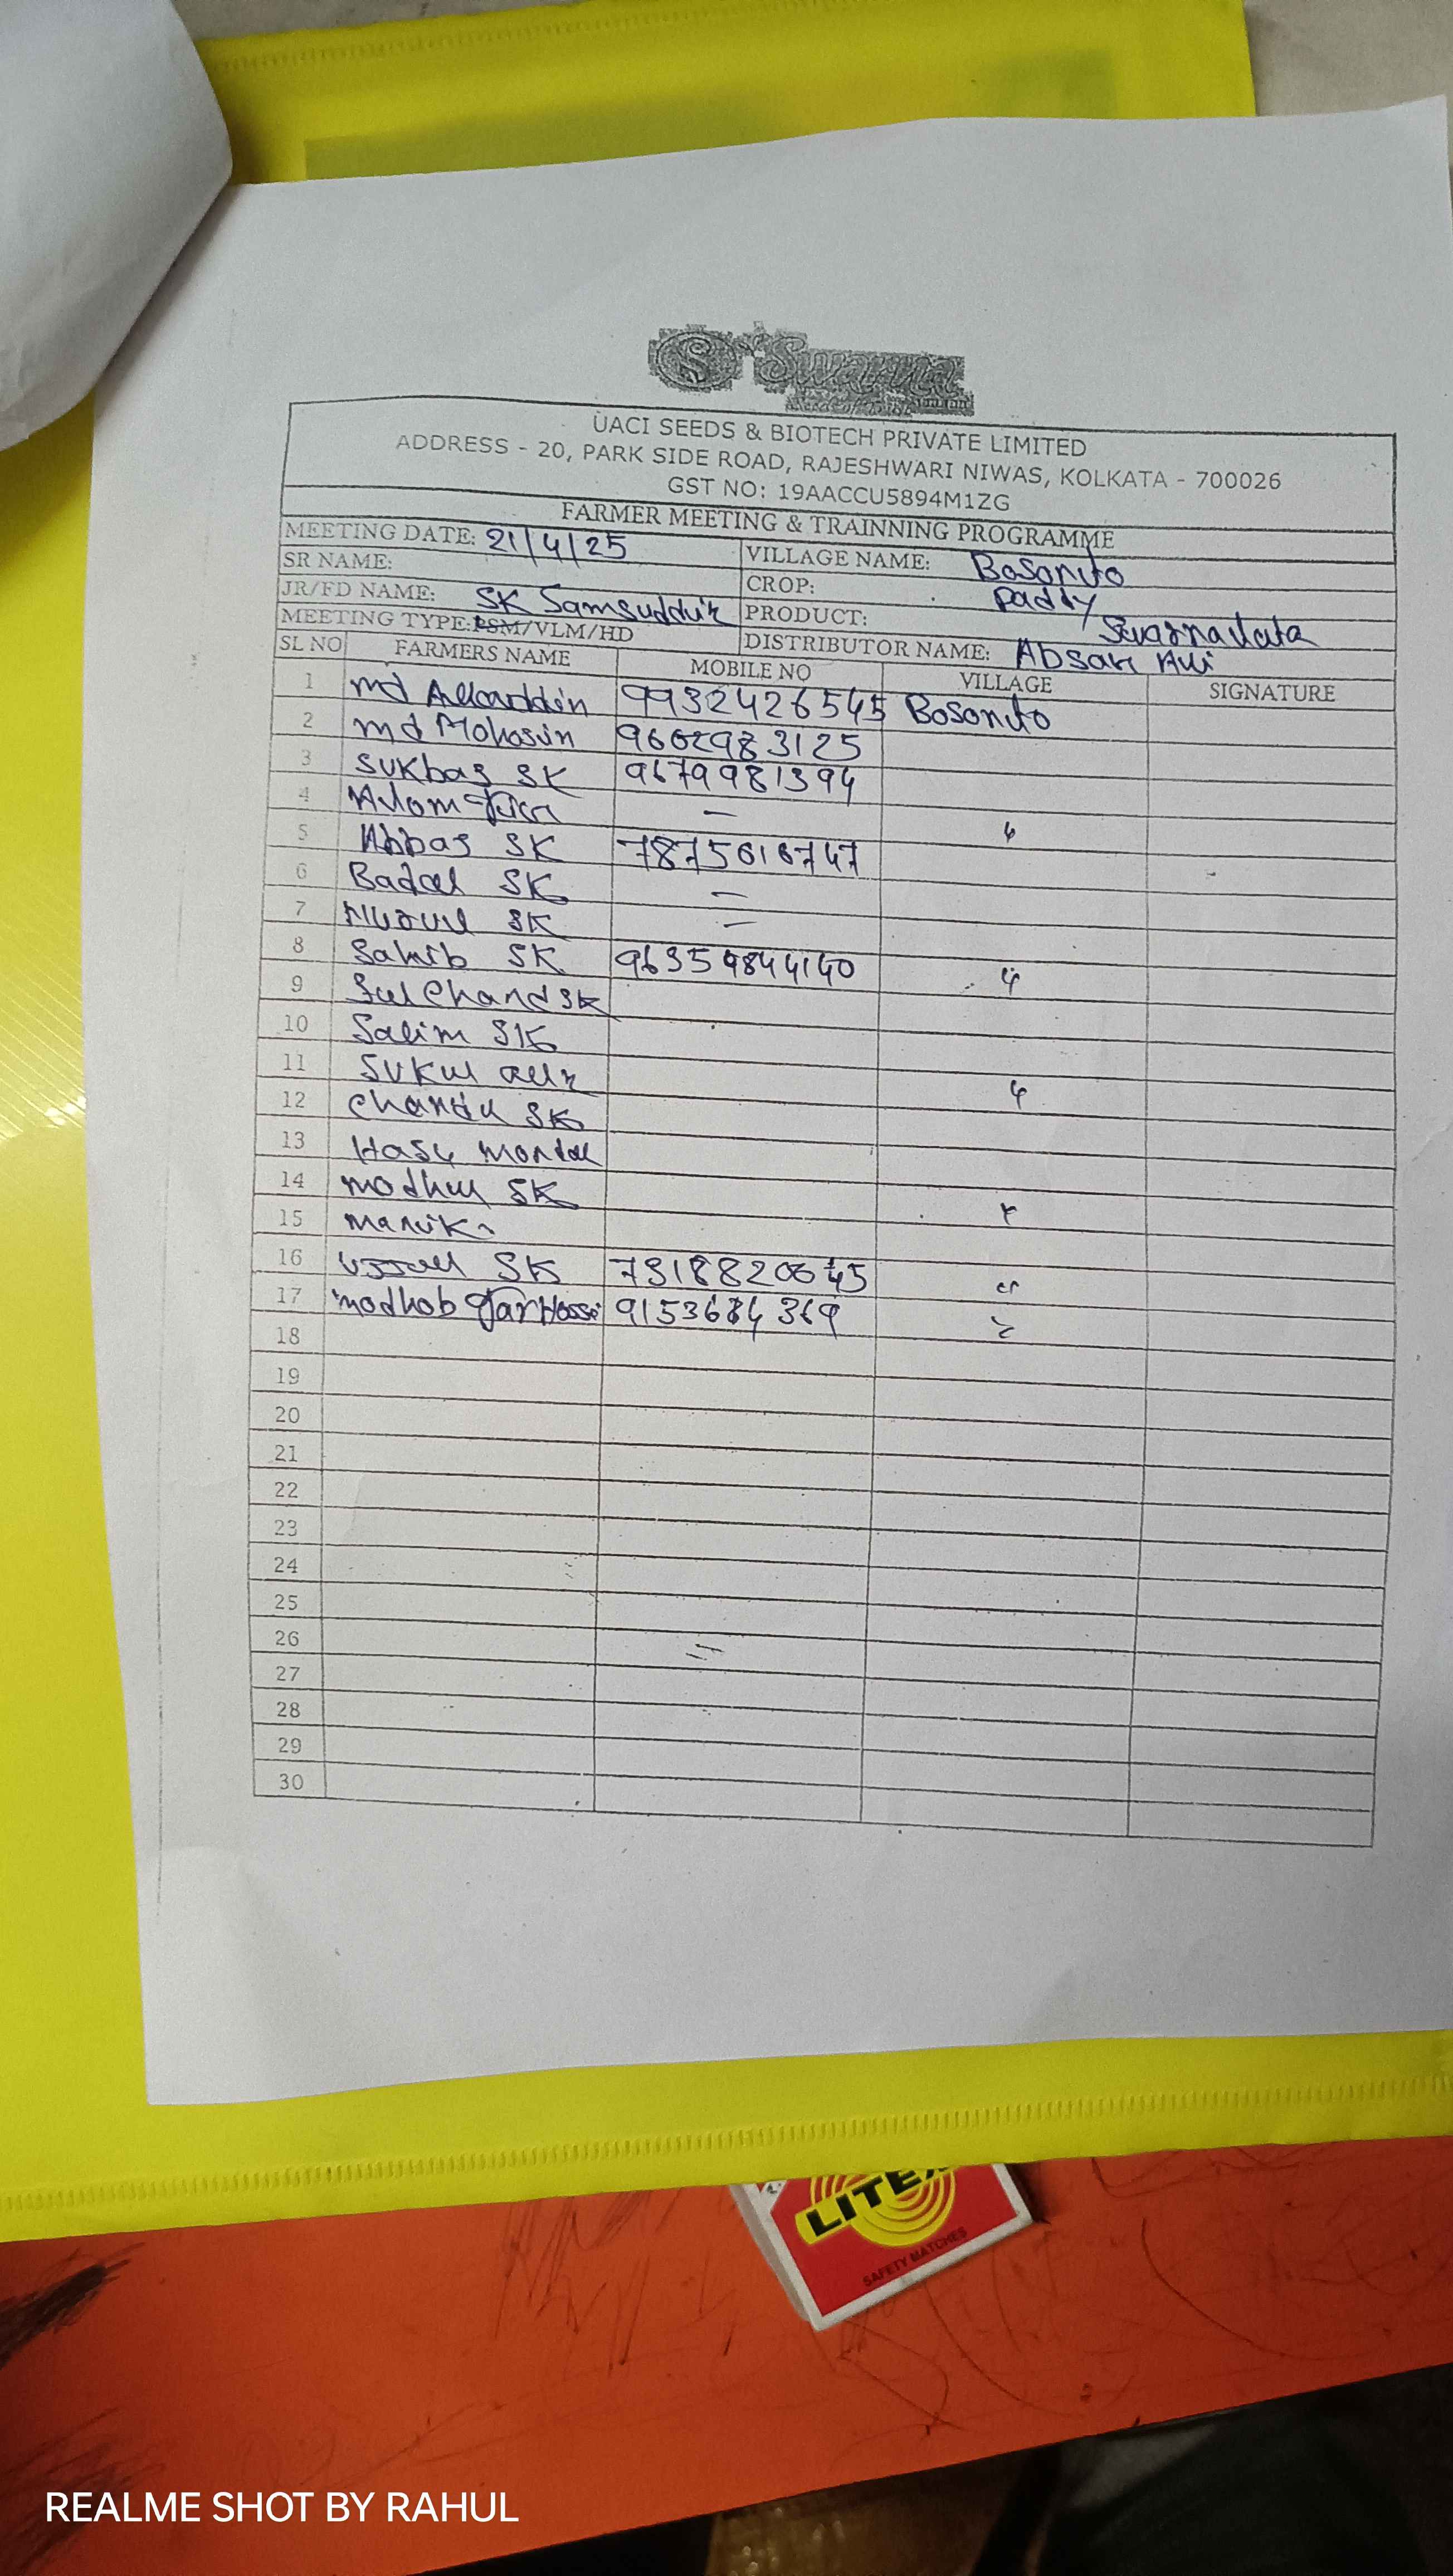 Swarna
UACI SEEDS & BIOTECH PRIVATE LIMITED
ADDRESS - 20, PARK SIDE ROAD, RAJESHWARI NIWAS, KOLKATA - 700026
GST NO: 19AACCU5894M1ZG
FARMER MEETING & TRAINNING PROGRAMME
MEETING DATE: 21/4/25 VILLAGE NAME: Bosonto
SR NAME: CROP: Paddy
JR/FD NAME: SK Samsuddin PRODUCT: Swarnalata
MEETING TYPE: PSM/VLM/HD DISTRIBUTOR NAME: Absar Ali
SL NO FARMERS NAME MOBILE NO VILLAGE SIGNATURE
1 md 9932426545 Bosonto
2 md Mohosin
3 Sukbas SK 9679981394
4 Alom —
5 Abbas SK
6 Badal SK —
7 Nurul SK —
8 Sahib SK
9 Chand SK
10 Salim SK
11 Sukul
12 Chandu SK
13 Hasu Mondal
14 modhu SK
15 Manik
16 Ujjal SK
17
18
19
20
21
22
23
24
25
26
27
28
29
30
LITEX
SAFETY MATCHES
REALME SHOT BY RAHUL